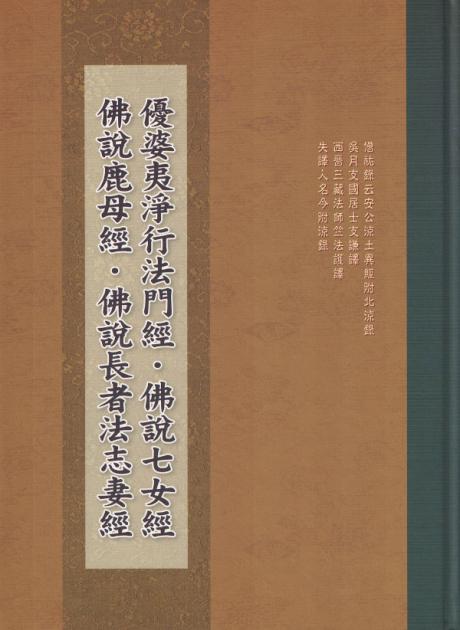 優婆夷淨行法門經・佛說七女經
佛說鹿母經・佛說長者法志妻經
僧祐錄云安公涼土異經附北涼錄
吳月支國居士支謙譯
西晉三藏法師竺法護譯
失譯人名今附涼錄